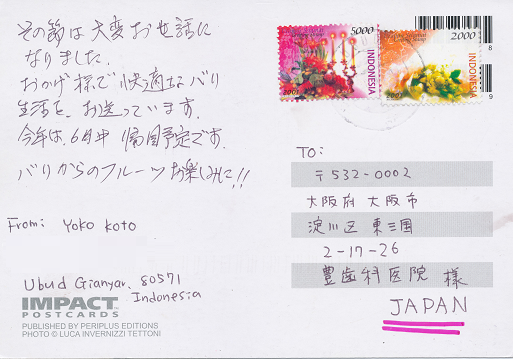 その節は大変お世話に
なりました.
おかげ様で快適なバリ
生活を、お送っています.
今年は、6月中 帰国予定です.
バリからのフルーツ お楽しみに!!
From: Yoko Koto
Ubud Gianyar. 80571
Indonesia
IMPACT
POSTCARDS
PUBLISHED BY PERIPLUS EDITIONS
PHOTO © LUCA INVERNIZZI TETTONI
5000
INDONESIA
2001
2000
INDONESIA
TO:
〒532-0002
大阪府 大阪市
淀川区 東三国
2-17-26
豊歯科医院 様
JAPAN